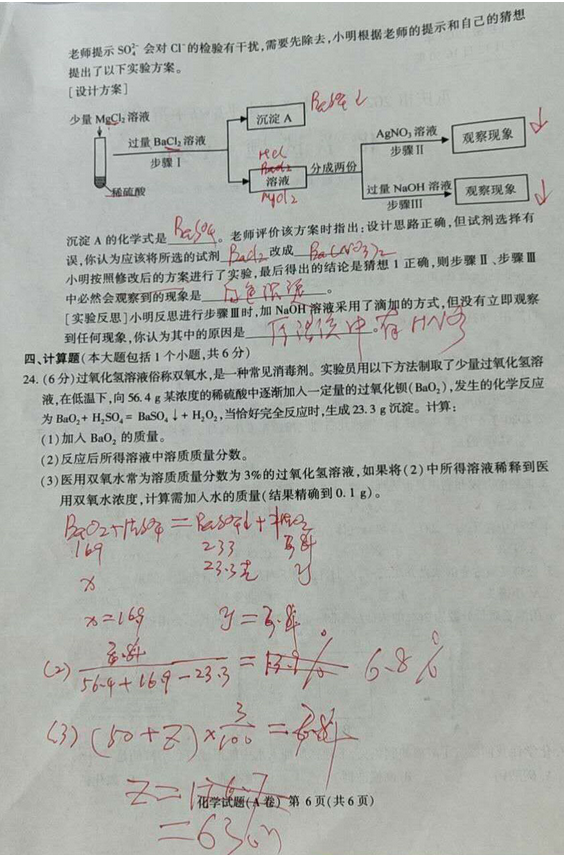 老师提示 SO₄²⁻ 会对 Cl⁻的检验有干扰,需要先除去,小明根据老师的提示和自己的猜想
提出了以下实验方案。
[设计方案]
少量 MgCl₂ 溶液
过量 BaCl₂ 溶液
步骤 Ⅰ
稀硫酸
沉淀 A
BaSO₄↓
HCl
溶液
MgCl₂
分成两份
AgNO₃ 溶液
步骤Ⅱ
观察现象
↓
过量 NaOH 溶液
步骤Ⅲ
观察现象
↓
沉淀 A 的化学式是 BaSO₄ 。老师评价该方案时指出:设计思路正确,但试剂选择有
误,你认为应该将所选的试剂 BaCl₂ 改成 Ba(NO₃)₂
小明按照修改后的方案进行了实验,最后得出的结论是猜想 1 正确,则步骤Ⅱ、步骤Ⅲ
中必然会观察到的现象是 白色沉淀 。
[实验反思]小明反思进行步骤Ⅲ时,加 NaOH 溶液采用了滴加的方式,但没有立即观察
到任何现象,你认为其中的原因是 溶液中有HNO₃ 。
四、计算题(本大题包括 1 个小题,共 6 分)
24. (6 分)过氧化氢溶液俗称双氧水,是一种常见消毒剂。实验员用以下方法制取了少量过氧化氢溶
液,在低温下,向 56.4 g 某浓度的稀硫酸中逐渐加入一定量的过氧化钡(BaO₂),发生的化学反应
为 BaO₂+ H₂SO₄= BaSO₄↓+ H₂O₂,当恰好完全反应时,生成 23.3 g 沉淀。计算:
(1)加入 BaO₂ 的质量。
(2)反应后所得溶液中溶质质量分数。
(3)医用双氧水常为溶质质量分数为 3%的过氧化氢溶液,如果将(2)中所得溶液稀释到医
用双氧水浓度,计算需加入水的质量(结果精确到 0.1 g)。
BaO₂+H₂SO₄=BaSO₄↓+H₂O₂
169 233
x 23.3克 y
x=16.9 y=3.4
(2) 3.4/(56.4+16.9-23.3) = 6.8%
(3) (50+Z)×3/100=3.4
Z=
化学试题(A 卷) 第 6 页(共 6 页)
=63.